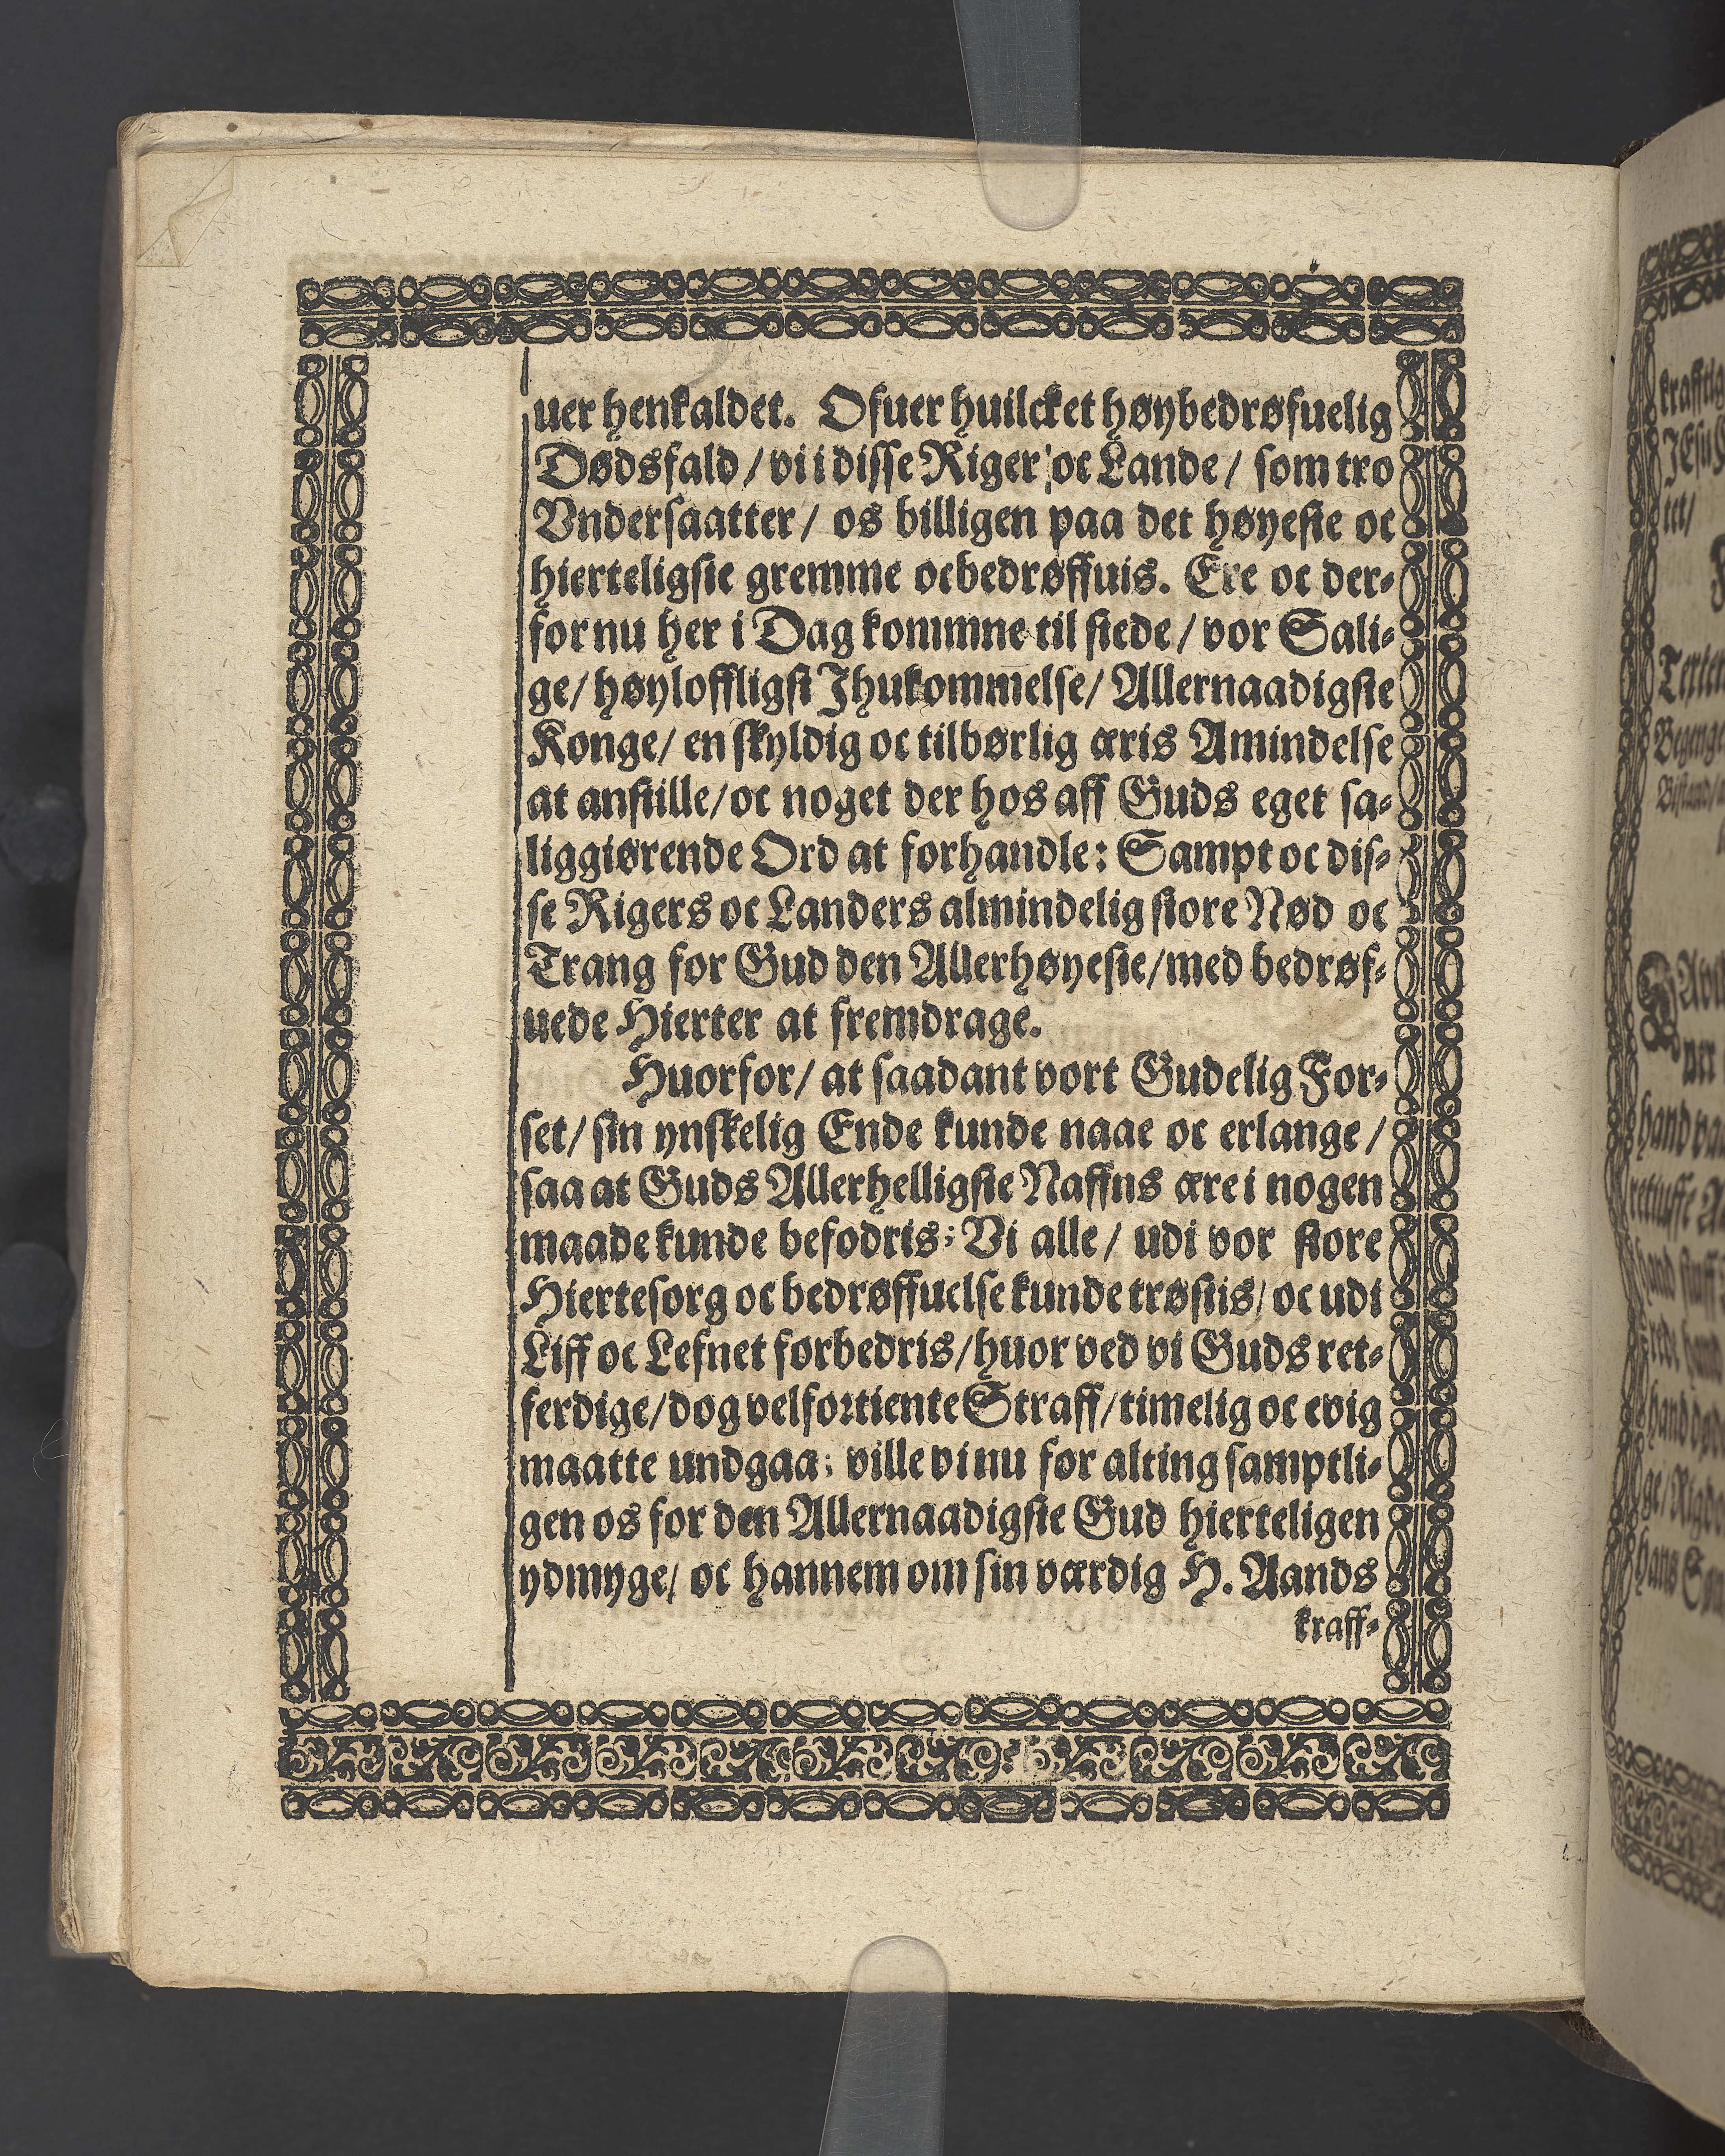 uer henkaldet. Ofuer huilcket høybedrøfuelig
Dødsfald / vi i disse Riger oc Lande / som tro
Vndersaatter / os billigen paa det høyeste oc
hierteligste gremme oc bedrøffuis. Ere oc der-
for nu her i Dag kommne til stede / vor Sali-
ge / høyloffligst Ihukommelse / Allernaadigste
Konge / en skyldig oc tilbørlig æris Amindelse
at anstille / oc noget der hos aff Guds eget sa-
liggiørende Ord at forhandle: Sampt oc dis-
se Rigers oc Landers almindelig store Nød oc
Trang for Gud den Allerhøyeste / med bedrøf-
uede Hierter at fremdrage.
Huorfor / at saadant vort Gudelig For-
set / sin ynskelig Ende kunde naae oc erlange /
saa at Guds Allerhelligste Naffns ære i nogen
maade kunde befodris; Vi alle / udi vor store
Hiertesorg oc bedrøffuelse kunde trøstis / oc udi
Liff oc Lefnet forbedris / huor ved vi Guds ret-
ferdige / dog velfortiente Straff / timelig oc evig
maatte undgaa; ville vi nu for alting samptli-
gen os for den Allernaadigste Gud hierteligen
ydmyge / oc hannem om sin værdig H. Aands
kraff-